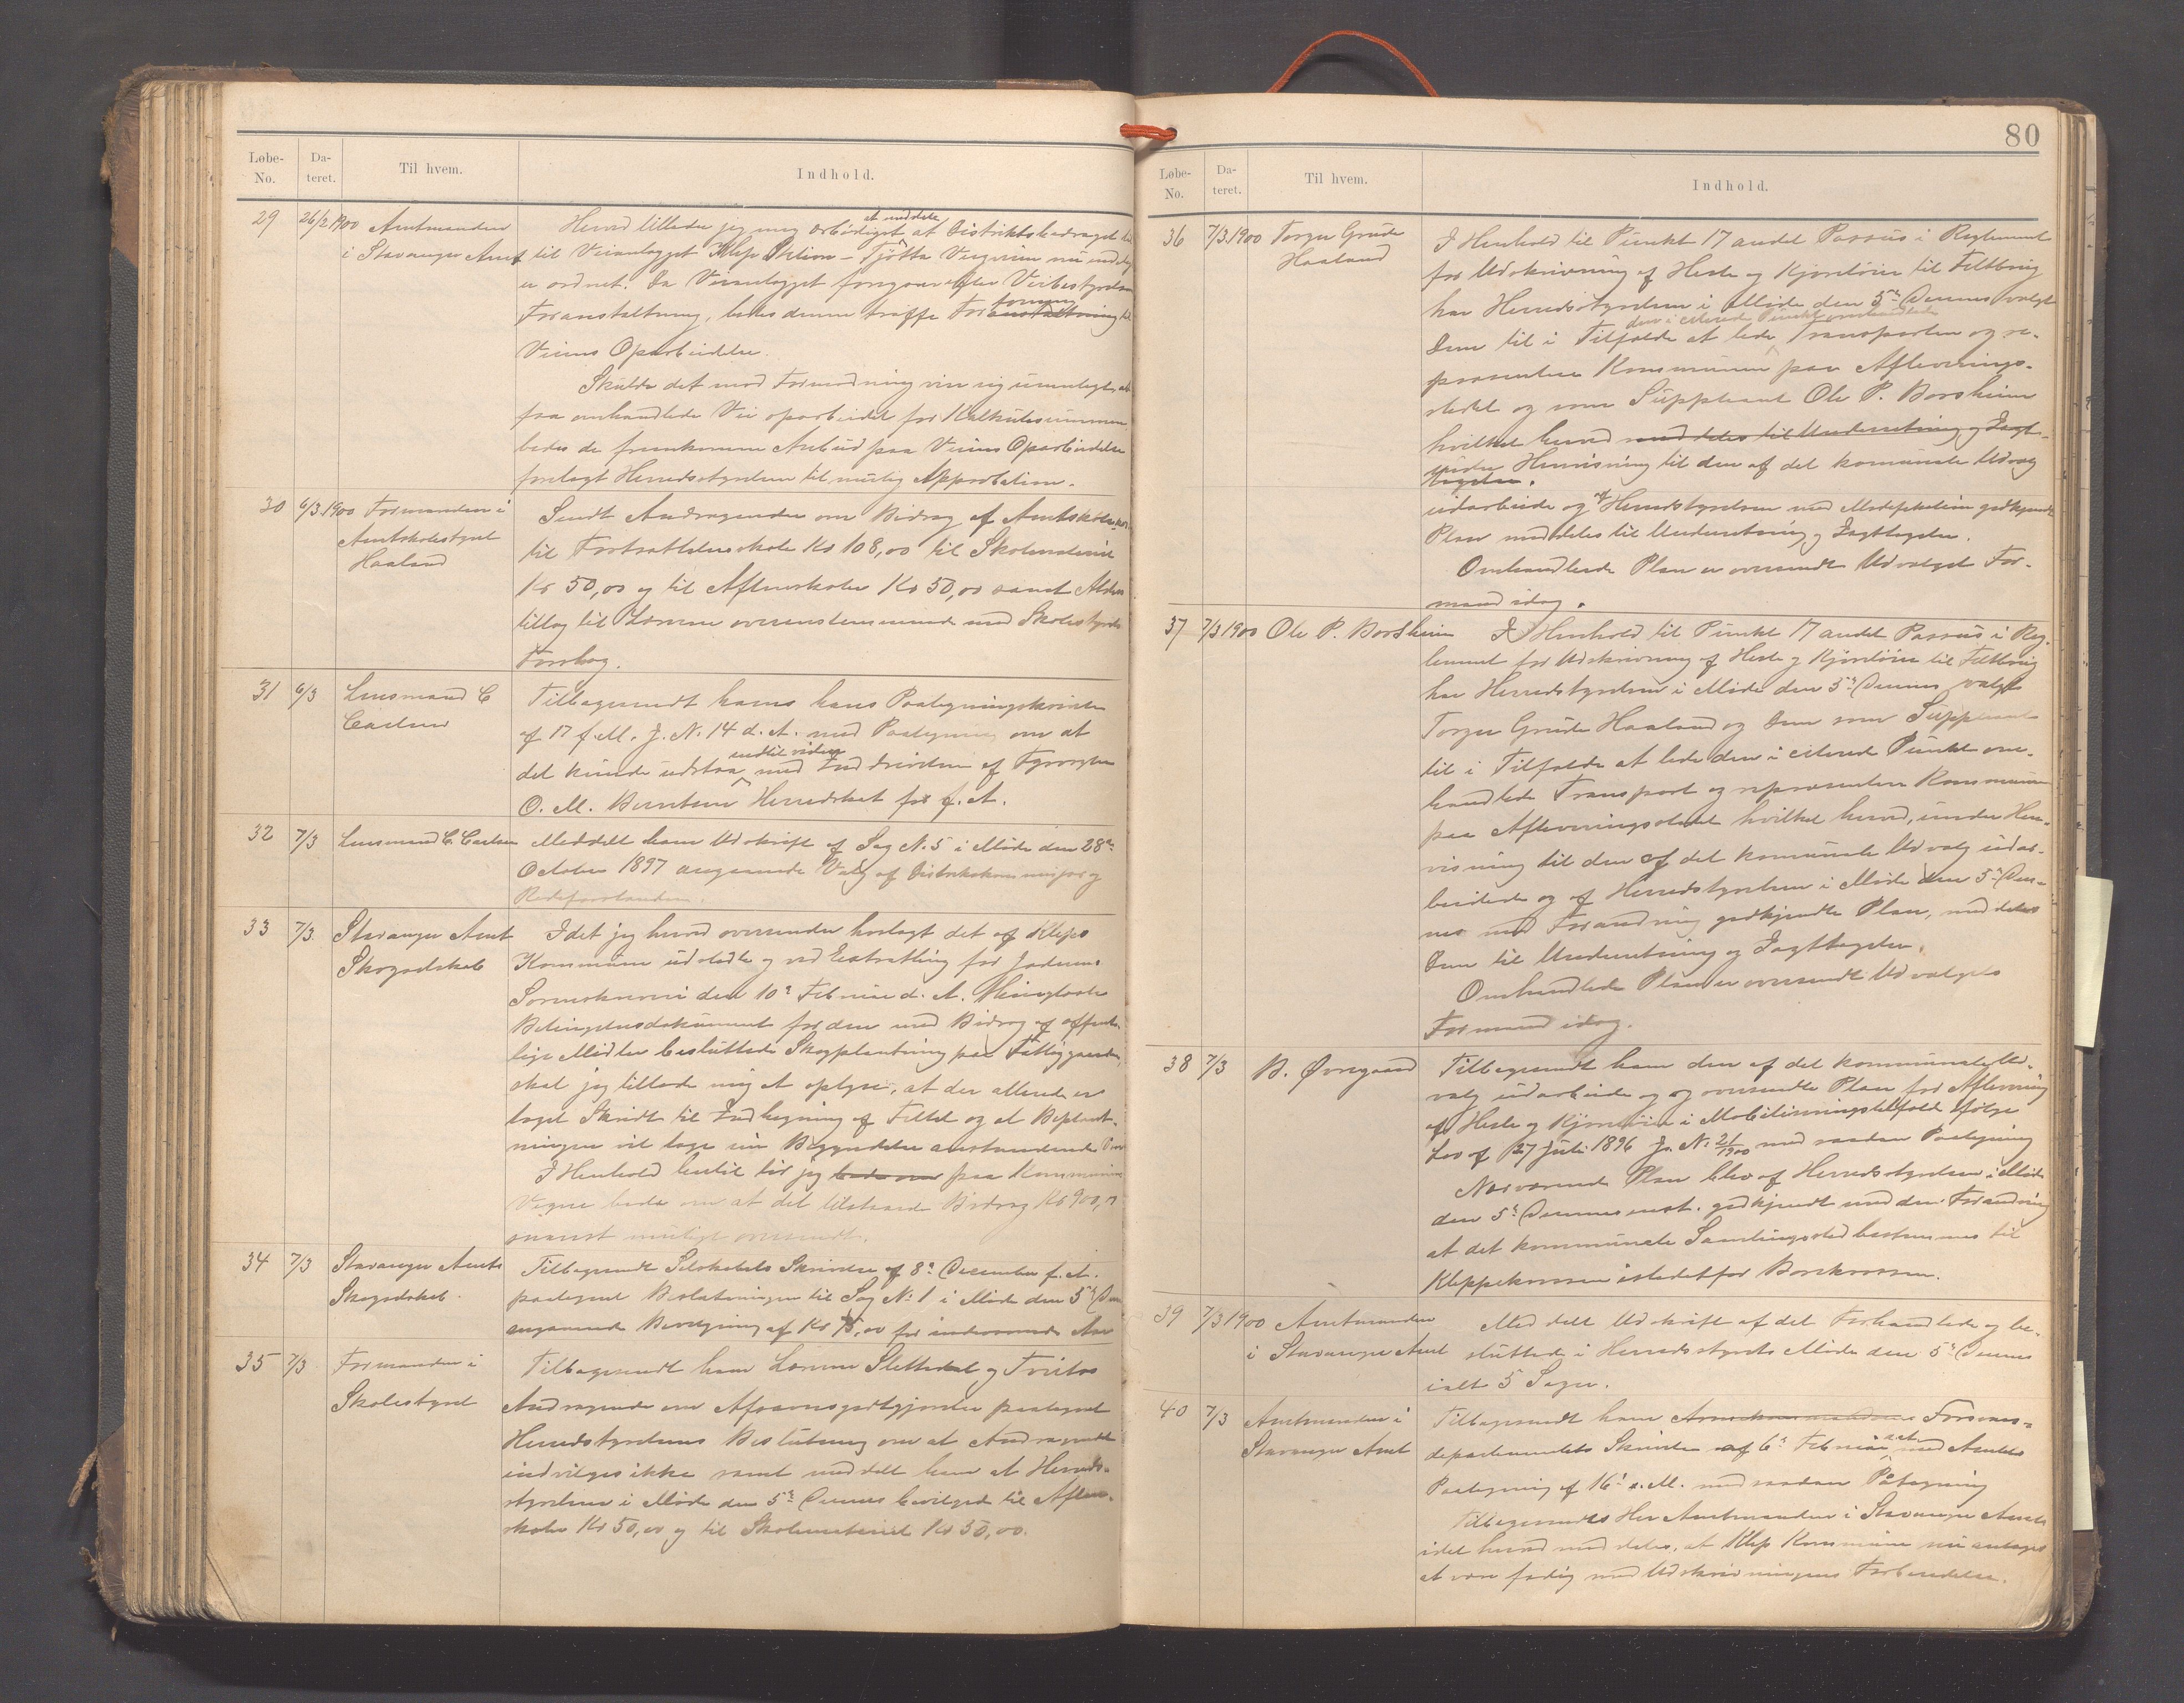 Løbe-No. Da-teret. Til hvem. Indhold.
29 26/2 1900 Amtmanden i Stavanger Amt
Herved tillader jeg mig ærbødigst at meddele at Distriktsbidraget til
til Veianlægget Klep Station – Tjøtta Vergerim nu endelig
er ordnet. Da Veianlægget foregaar efter Veibestyrelsens
Foranstaltning, bedes denne træffe Foranstaltning til
Veiens Oparbeidelse.
Skulde det mod Formodning vise sig umuligt at
faa omhandlede Vei oparbeidet for Kalkulesummen
bedes de fremkomne Anbud paa Veiens Oparbeidelse
forelagt Herredsstyrelsen til mulig Approbation.
30 6/3 1900 Formanden i Amtskolestyret Haaland
Sendt Andragende om Bidrag af Amtskolekassen
til Fortsættelsesskole Kr 108,00 til Skolemateriel
Kr 50,00 og til Aftenskoler Kr 50,00 samt Alders
tillæg til Lærerne overensstemmende med Skolestyrets
Forslag.
31 6/3 Lensmand C Carlsen
Tilbagesendt hans Paategningsskrivelse
af 17 f.M. J. N. 14 d. A. med Paategning om at
det kunde udstaa indtil videre med Inddrivelsen af
O. M. Berntsens Herredsskat for f. A.
32 7/3 Lensmand C. Carlsen
Meddelt ham Udskrift af Sag N. 5 i Møde den 28de
October 1897 angaaende Valg af Distriktskommissær og
Rodeforstandere.
33 7/3 Stavanger Amt Skogselskab
Idet jeg herved oversender hoslagt det af Kleps
Kommune udstedte og ved Extraretting for Jæderens
Sorenskriveri den 10de Februar d. A. thinglæste
Betingelsesdokument for den med Bidrag af offent-
lige Midler besluttede Skogplantning paa Fattiggaarden,
skal jeg tillade mig at oplyse, at der allerede er
taget Skridt til Indhegning af Feltet og at Beplant-
ningen vil tage sin Begyndelse anstundende Vaar
I Henhold hertil tør jeg bede om paa Kommunens
Vegne bede om at det tilstaaede Bidrag Kr 900,00
snarest muligt oversendt.
34 7/3 Stavanger Amts Skogselskab.
Tilbagesendt Selskabets Skrivelse af 8de December f. A.
paategnet Beslutningen til Sag N. 1 i Møde den 5te Dennes
angaaende Bevilgning af Kr 75,00 for indeværende Aar
35 7/3 Formanden i Skolestyret
Tilbagesendt ham Lærerne Slettedal og
Andragende om Afsavnsgodtgjørelse paategnet
Herredsstyrelsens Beslutning om at Andragendet
indvilges ikke samt meddelt ham at Herreds-
styrelsen i Møde den 5te Dennes bevilgede til Aften-
skoler Kr 50,00 og til Skolemateriel Kr 50,00.
80
Løbe-No. Da-teret. Til hvem. Indhold.
36 7/3 1900 Torger Grude Haaland
I Henhold til Punkt 17 andet Passus i Reglement
for Udskrivning af Heste og Kjøretøier til Feltbrug
har Herredsstyrelsen i Møde den 5te Dennes valgt
Dem til i Tilfælde at lede den i citerede Punkt omhandlede Transporten og re-
præsentere Kommunen paa Afleverings-
stedet og som Suppleant Ole P. Borsheim
hvilket herved meddeles til Underretning og Iagt-
tagelse. under Henvisning til den af det komunale Udvalg
udarbeide og af Herredsstyrelsen med Modifikation godkjendte
Plan meddeles til Underretning og Iagttagelse.
Omhandlende Plan er oversendt Udvalget For-
mand idag.
37 7/3 1900 Ole P. Borsheim
I Henhold til Punkt 17 andet Passus i Reg-
lement for Udskrivning af Heste og Kjøretøier til Feltbrug
har Herredsstyrelsen i Møde den 5te Dennes valgt
Torger Grude Haaland og Dem som Suppleant
til i Tilfælde at lede den i citerede Punkt om-
handlede Transport og repræsentere Kommunen
paa Afleveringsstedet hvilket herved, under Hen-
visning til den af det komunale Udvalg udar-
beidede og af Herredsstyrelsen i Møde den 5te Den-
nes med Forandring godkjendte Plan, meddeles
Dem til Underretning og Iagttagelse.
Omhandlede Plan er oversendt Udvalgets
Formand idag.
38 7/3 B. Øvregaard
Tilbagesendt ham den af det kommunale Ud-
valg udarbeide og oversendte Plan for Aflevering
af Heste og Kjøretøier i Mobiliseringstilfælde ifølge
Lov af 27 Juli 1896 Jr. N. 21/1900 med saadan Paategning
Nærværende Plan blev af Herredsstyrelsen i Møde
den 5te Dennes enst. godkjendt med den Forandring
at det kommunale Samlingssted bestemmes til
Kleppekrossen istedetfor Borekrossen.
39 7/3 1900 Amtmanden i Stavanger Amt
Meddelt Udskrift af det Forhandlede og be-
sluttede i Herredsstyrets Møde den 5te Dennes
ialt 5 Sager.
40 7/3 Amtmanden i Stavanger Amt
Tilbagesendt ham Forsvars-
departementets Skrivelse af 6te Februar med Amtets
Paategning af 16de s. M. med saadan Påtegning
Tilbagesendes Her Amtmanden i Stavanger Amt
idet herved meddeles, at Klep Kommune nu antages
at være færdig med Udskrivningens Forberedelse.